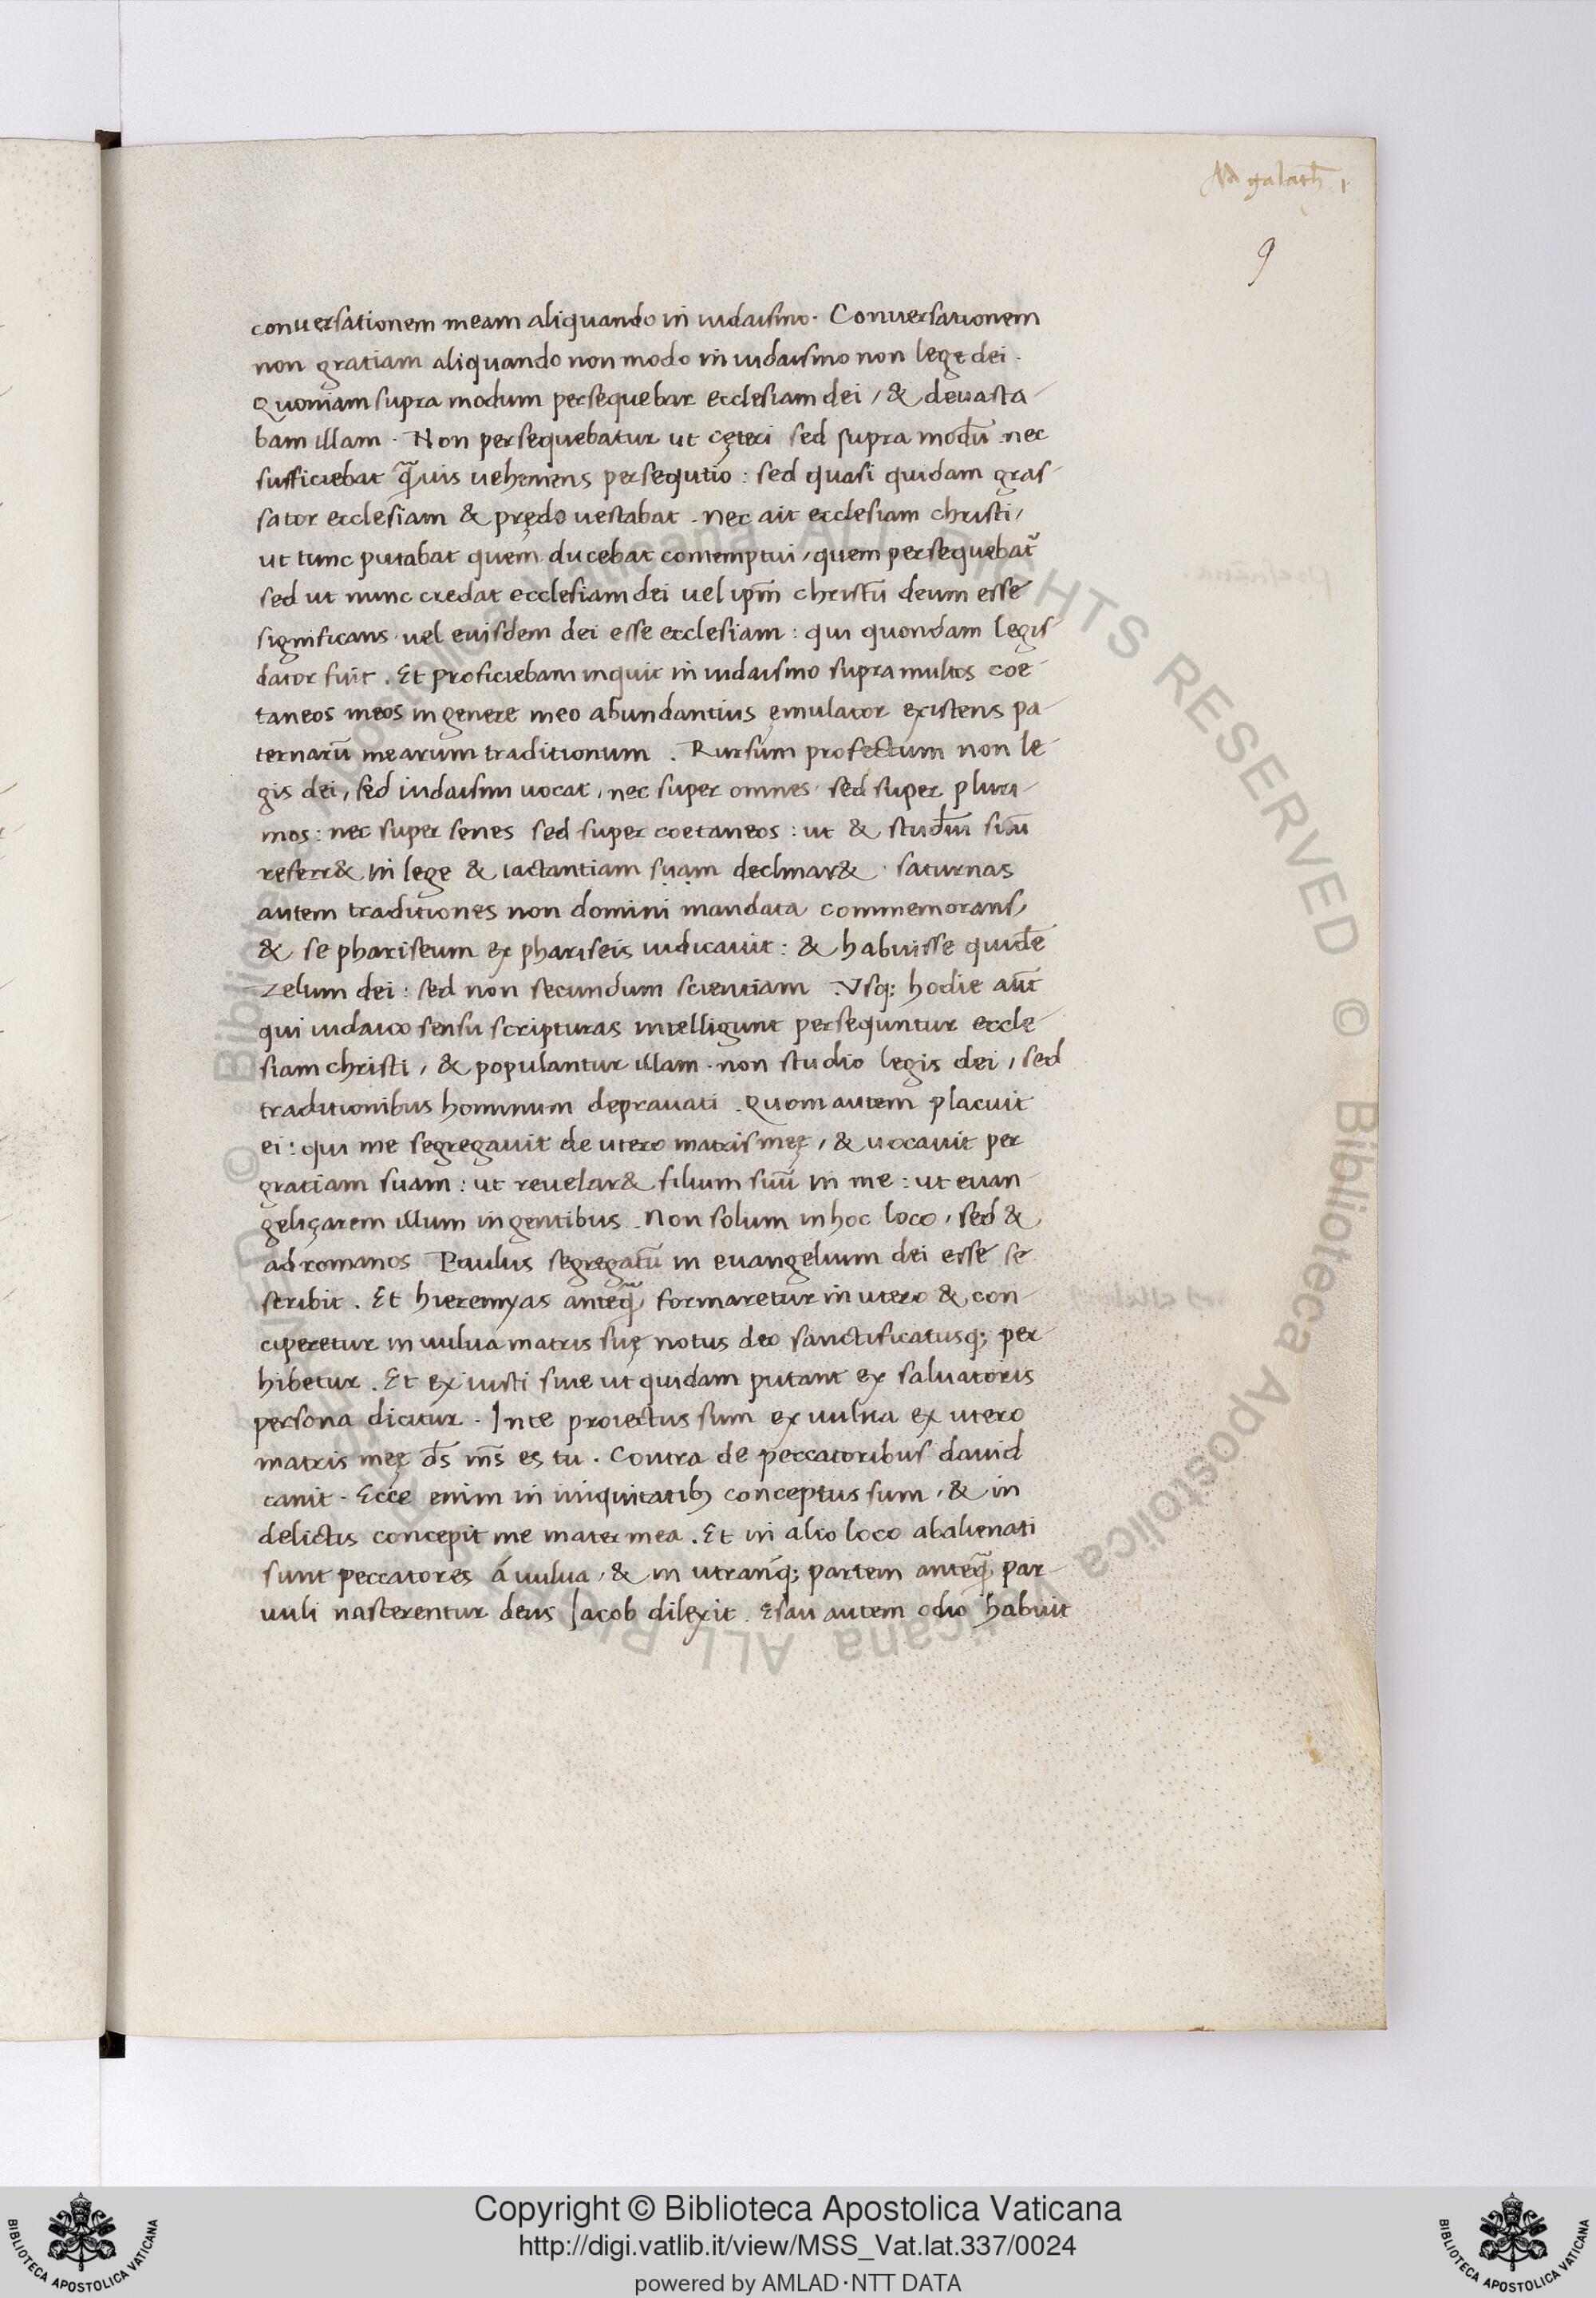 Ad galath 1
9
conuersationem meam aliquando in iudaismo. Conuersationem
non gratiam aliquando non modo in iudaismo non lege dei.
Quoniam supra modum persequebar ecclesiam dei, & deuasta-
bam illam. Non persequebatur ut cęteri sed supra modū nec
sufficiebat q̃uis uehemens persequtio: sed quasi quidam gras-
sator ecclesiam & prędo uestabat. nec ait ecclesiam christi,
ut tunc putabat quem ducebat contemptui, quem persequebat̃
sed ut nunc credat ecclesiam dei uel ip̃m christū deum esse
significans uel euisdem dei esse ecclesiam: qui quondam legis-
dator fuit. Et proficiebam inquit in iudaismo supra multos coe-
taneos meos in genere meo abundantius ęmulator existens pa-
ternarū mearum traditionum. Rursum profectum non le-
gis dei, sed iudaismi uocat, nec super omnes sed super pluri-
mos: nec super senes sed super coetaneos: ut & studiū suū
referr& in lege & iactantiam suam declinar& saturnas
autem traditiones non domini mandata commemorans,
& se phariseum ex phariseis iudicauit: & habuisse quidē
zelum dei: sed non secundum scientiam. Vsq; hodie aūt
qui iudaico sensu scripturas intelligunt persequntur eccle-
siam christi, & populantur illam. non studio legis dei, sed
traditionibus hominum deprauati. Quom autem placuit
ei: qui me segregauit de utero matris męę, & uocauit per
gratiam suam: ut reuelar& filium suū in me: ut euan-
geliçarem illum in gentibus. Non solum in hoc loco, sed &
ad romanos Paulus segregatū in euangelium dei esse se
scribit. Et hieremyas anteq̃ formaretur in utero & con-
ciperetur in uulua matris suę notus deo sanctificatusq; per-
hibetur. Et ex iusti siue ut quidam putant ex saluatoris
persona dicitur. In te proiectus sum ex uulua ex utero
matris meę d̄s m̄s es tu. Contra de peccatoribus dauid
canit. Ecce enim in iniquitatib; conceptus sum, & in
delictis concepit me mater mea. Et in alio loco abalienati
sunt peccatores á uulua, & in utranq; partem anteq̃ par-
uuli nascerentur deus Jacob dilexit. Esau autem odio habuit
Copyright © Biblioteca Apostolica Vaticana
http://digi.vatlib.it/view/MSS_Vat.lat.337/0024
powered by AMLAD·NTT DATA